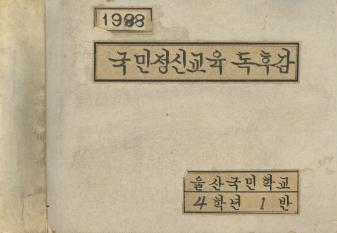 1988
국민정신교육 독후감
울산국민학교
4학년 1반